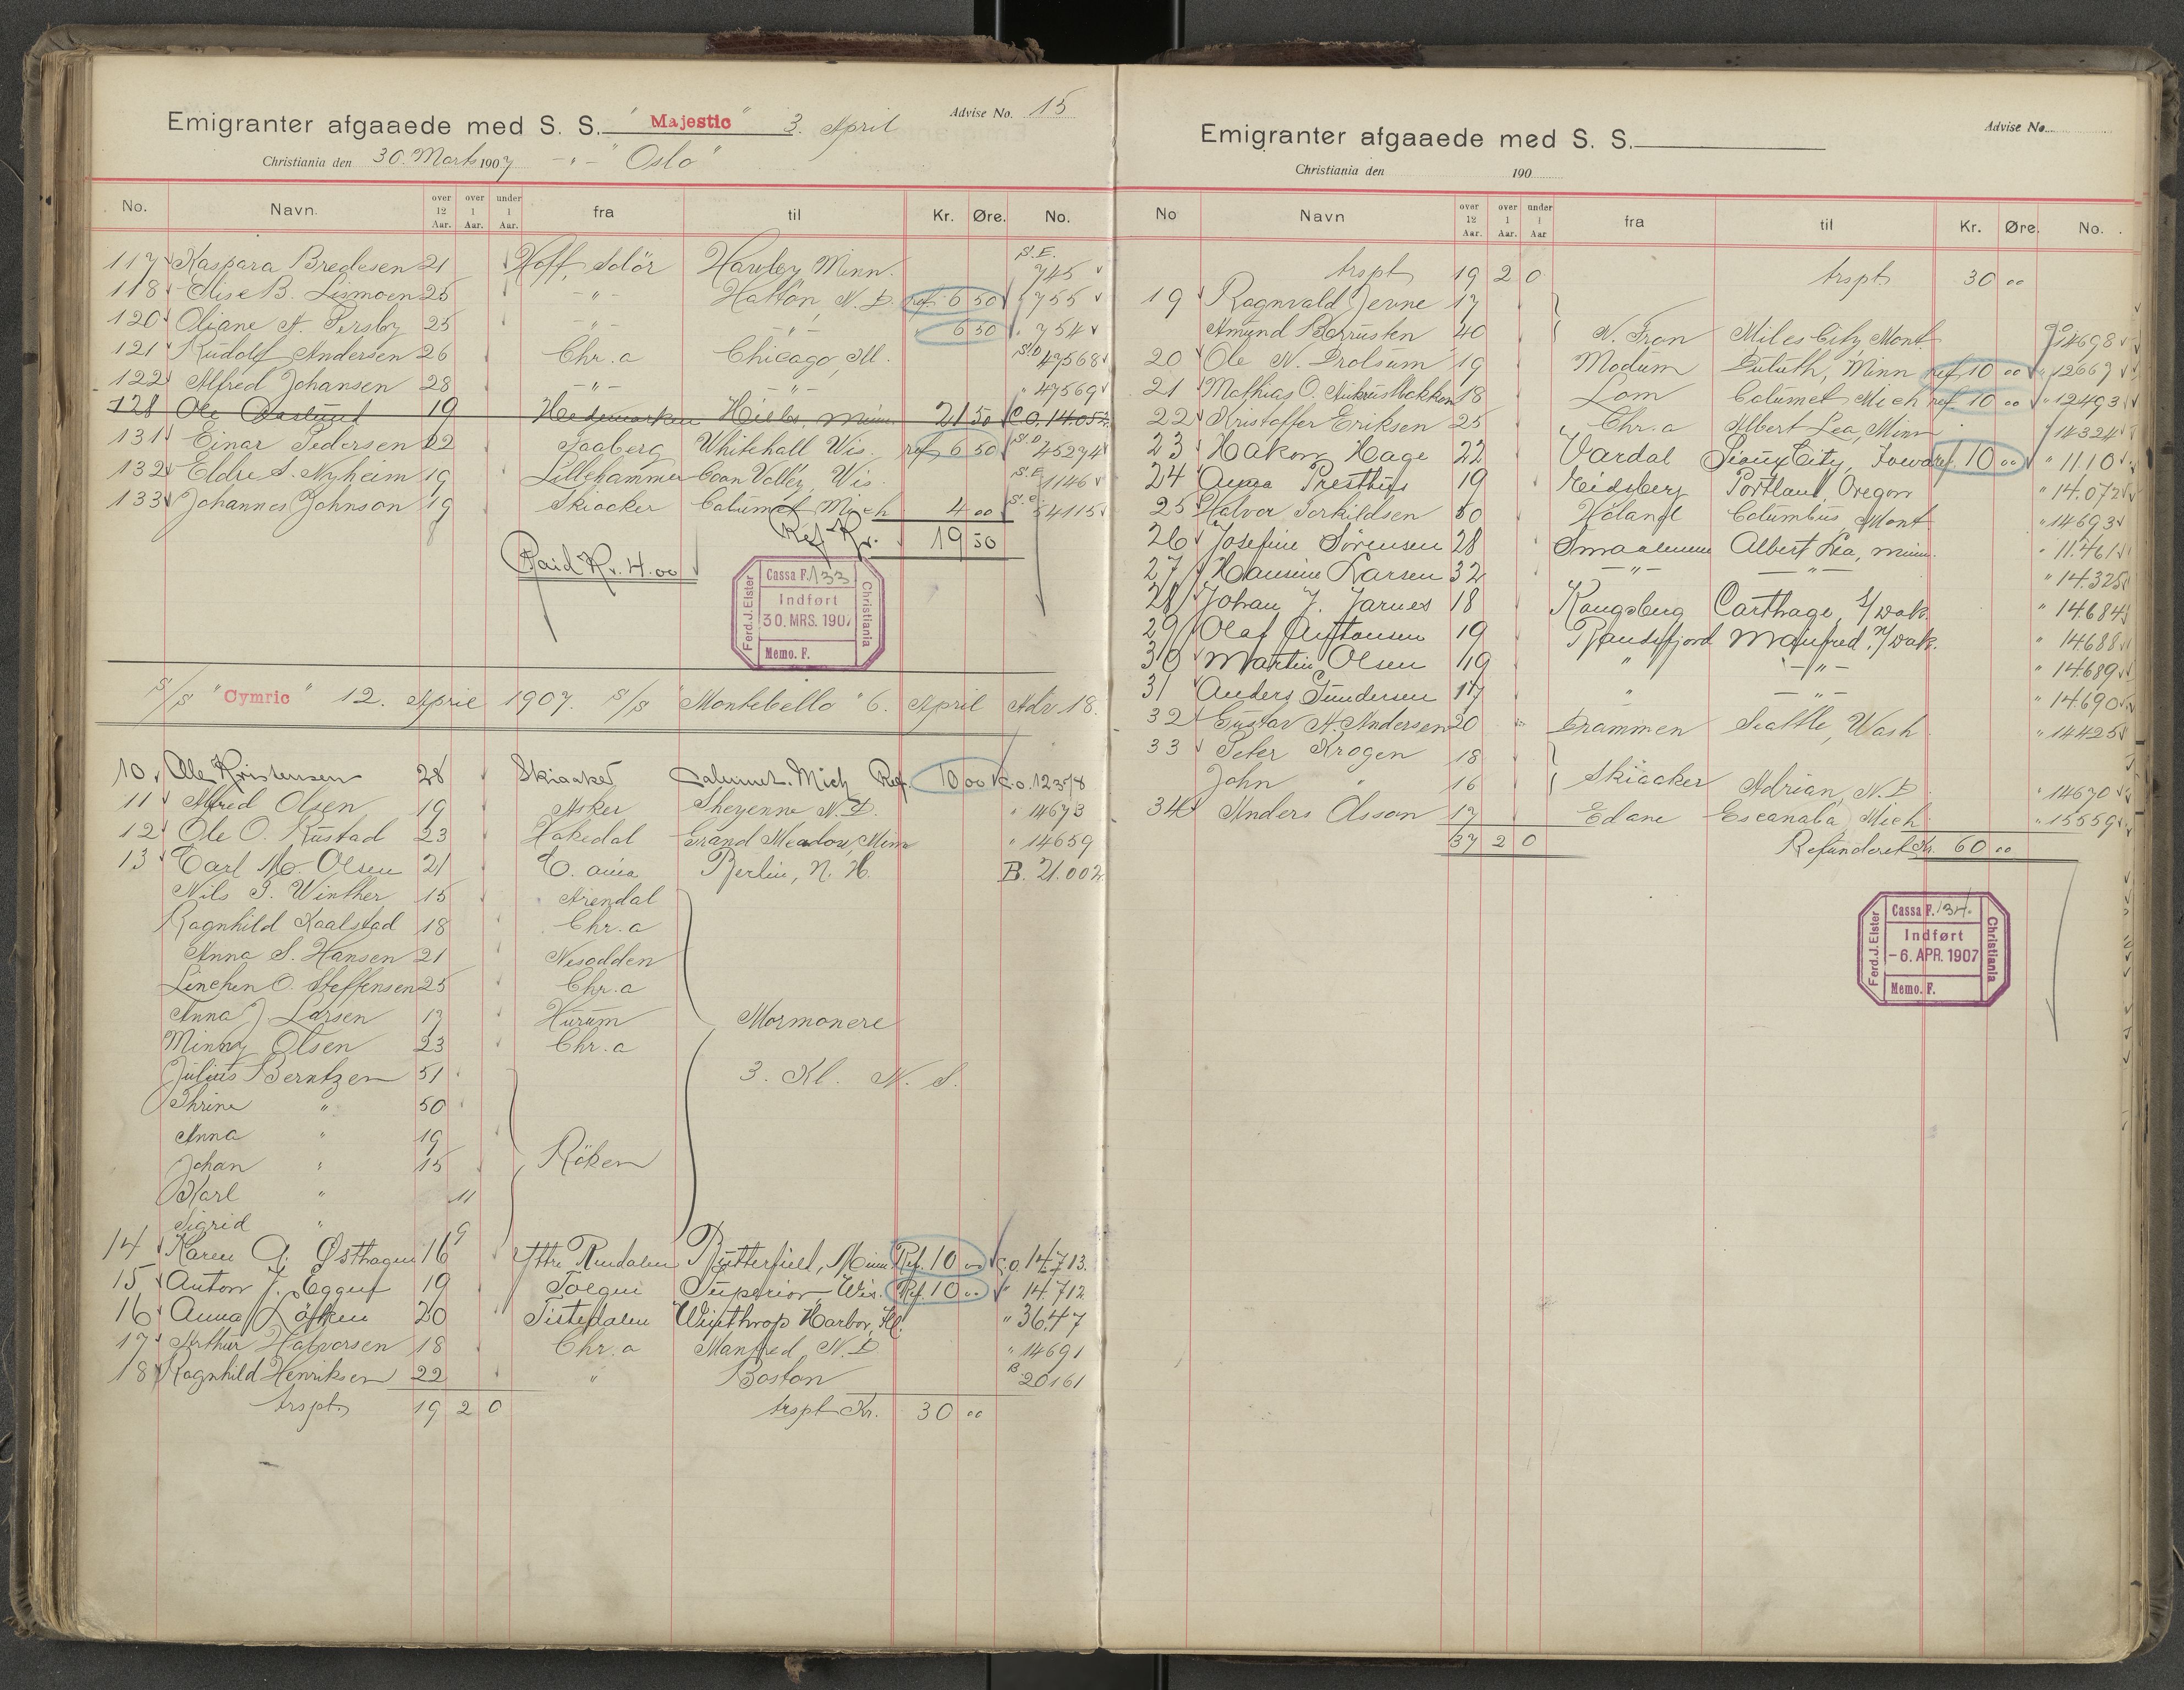 Emigranter afgaaede med S. S. "Majestic" 3. April Advise No. 15
Christiania den 30. Marts 1907 -"- "Oslo"
No. Navn. over 12 Aar. over 1 Aar. under 1 Aar. fra til Kr. Øre. No.
117 Kaspara Bredesen 21 Hoff, Solör Hawley Minn. S.E. 745
118 Elise B. Lismoen 25 -"- Hatton, N. D. ref. 6 50 " 755
120 Oliane A. Persby 25 -"- -"- " 6 50 " 754
121 Rudolf Andersen 26 Chr.a Chicago, Ill. S.D. 47568
122 Alfred Johansen 28 -"- -"- " 47569
128 Ole 19 Hedemarken Minn. 21 50 C.O. 14.052
131 Einar Pedersen 22 Faaberg Whitehall Wis. ref. 6 50 S.D. 45274
132 Eldre S. Nyheim 19 Lillehammer Coon Valley, Wis. S.E. 1146
133 Johannes Johnson 19 Skiaaker Calumet Mich 4 00 S.C. 54115
8 Ref Kr. 19 50
Paid Kr. 4.00
Cassa F. 133
Indført
30. MRS. 1907
Memo. F.
Ferd. J. Elster Christiania
S/S "Cymric" 12. April 1907. S/S "Montebello" 6. April Adv 18.
10 Ole Kristensen 28 Skiaaker Calumet. Mich Ref. 10 00 C.o. 12378
11 Alfred Olsen 19 Asker Sheyenne N. D. " 14673
12 Ole O. Rustad 23 Hakedal Grand Meadow, Minn " 14659
13 Carl M. Olsen 21 C. ania Berlin, N. H. B. 21.002
Nils J. Winther 15 Arendal
Ragnhild Kaalstad 18 Chr.a
Anna S. Hansen 21 Nesodden
Linchen O. Steffensen 25 Chr.a
Anna J Larsen 17 Hurum Mormonere
Minny Olsen 23 Chr.a
Julius Berntzen 51 3. Kl. N. S.
Thrine " 50
Anna " 19
Johan " 15 Röken
Karl " 11
Sigrid " 9
14 Karen G. Østhagen 16 Ytre Rendalen Butterfield, Minn Ref. 10 00 C.o. 14.713.
15 Anton J. Eggen 19 Tolgen Superior, Wis. Ref. 10 00 " 14.712
16 Anna Löfken 20 Tistedalen Winthrop Harbor, Ill. " 3647
17 Arthur Halvorsen 18 Chr.a Manfred N. D. " 14691
18 Ragnhild Henriksen 22 " Boston B 20161
trspt. 19 2 0 trspt Kr. 30 00
Emigranter afgaaede med S. S. Advise No.
Christiania den 190
No Navn over 12 Aar. over 1 Aar. under 1 Aar fra til Kr. Øre. No.
trspt 19 2 0 trspt. 30 00
19 Ragnvald Jevne 17
Amund Borrusten 40 N. Fron Miles City, Mont. 14698
20 Ole N. Drolsum 19 Modum Duluth, Minn ref. 10 00 " 12667
21 Mathias O. 18 Lom Calumet Mich ref. 10 00 " 12493
22 Kristoffer Eriksen 25 Chr.a Albert Lea, Minn 14324
23 Hakon Hage 22 Vardal Sioux City, Iowa ref. 10 00 " 11.10
24 Anna Presthus 19 Eidsberg Portland, Oregon " 14.072
25 Halvor Torkildsen 50 Höland Columbus, Mont " 14693
26 Josefine Sörensen 28 Smaalenene Albert Lea, Minn. " 11.461
27 Hansine Larsen 32 -"- -"- " 14.325
28 Johan J. Jarnes 18 Kongsberg Carthage, S/Dak. " 14.684
29 Olaf Anttonsen 19 Randsfjord Manfred, N/Dak. " 14.688
30 Martin Olsen 19 " -"- " 14.689
31 Anders Gundersen 17 " -"- " 14.690
32 Gustav A. Andersen 20 Drammen Seattle, Wash " 14425
33 Peter Krogen 18
John " 16 Skiaaker Adrian, N. D " 14670
34 Anders Olsson 17 Edane Escanaba Mich " 15559
37 2 0 Refunderet Kr. 60 00
Cassa F. 134.
Indført
-6. APR. 1907
Memo. F.
Ferd. J. Elster Christiania